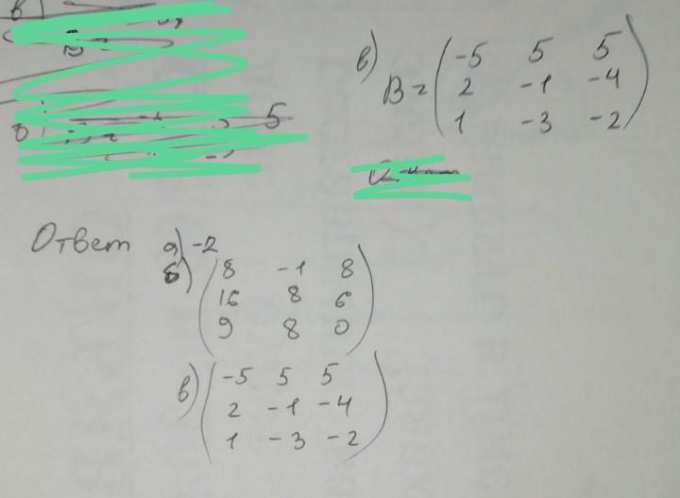 в) B = (-5 5 5
2 -1 -4
1 -3 -2)
Ответ а) -2
б) (8 -1 8
16 8 6
9 8 0)
в) (-5 5 5
2 -1 -4
1 -3 -2)